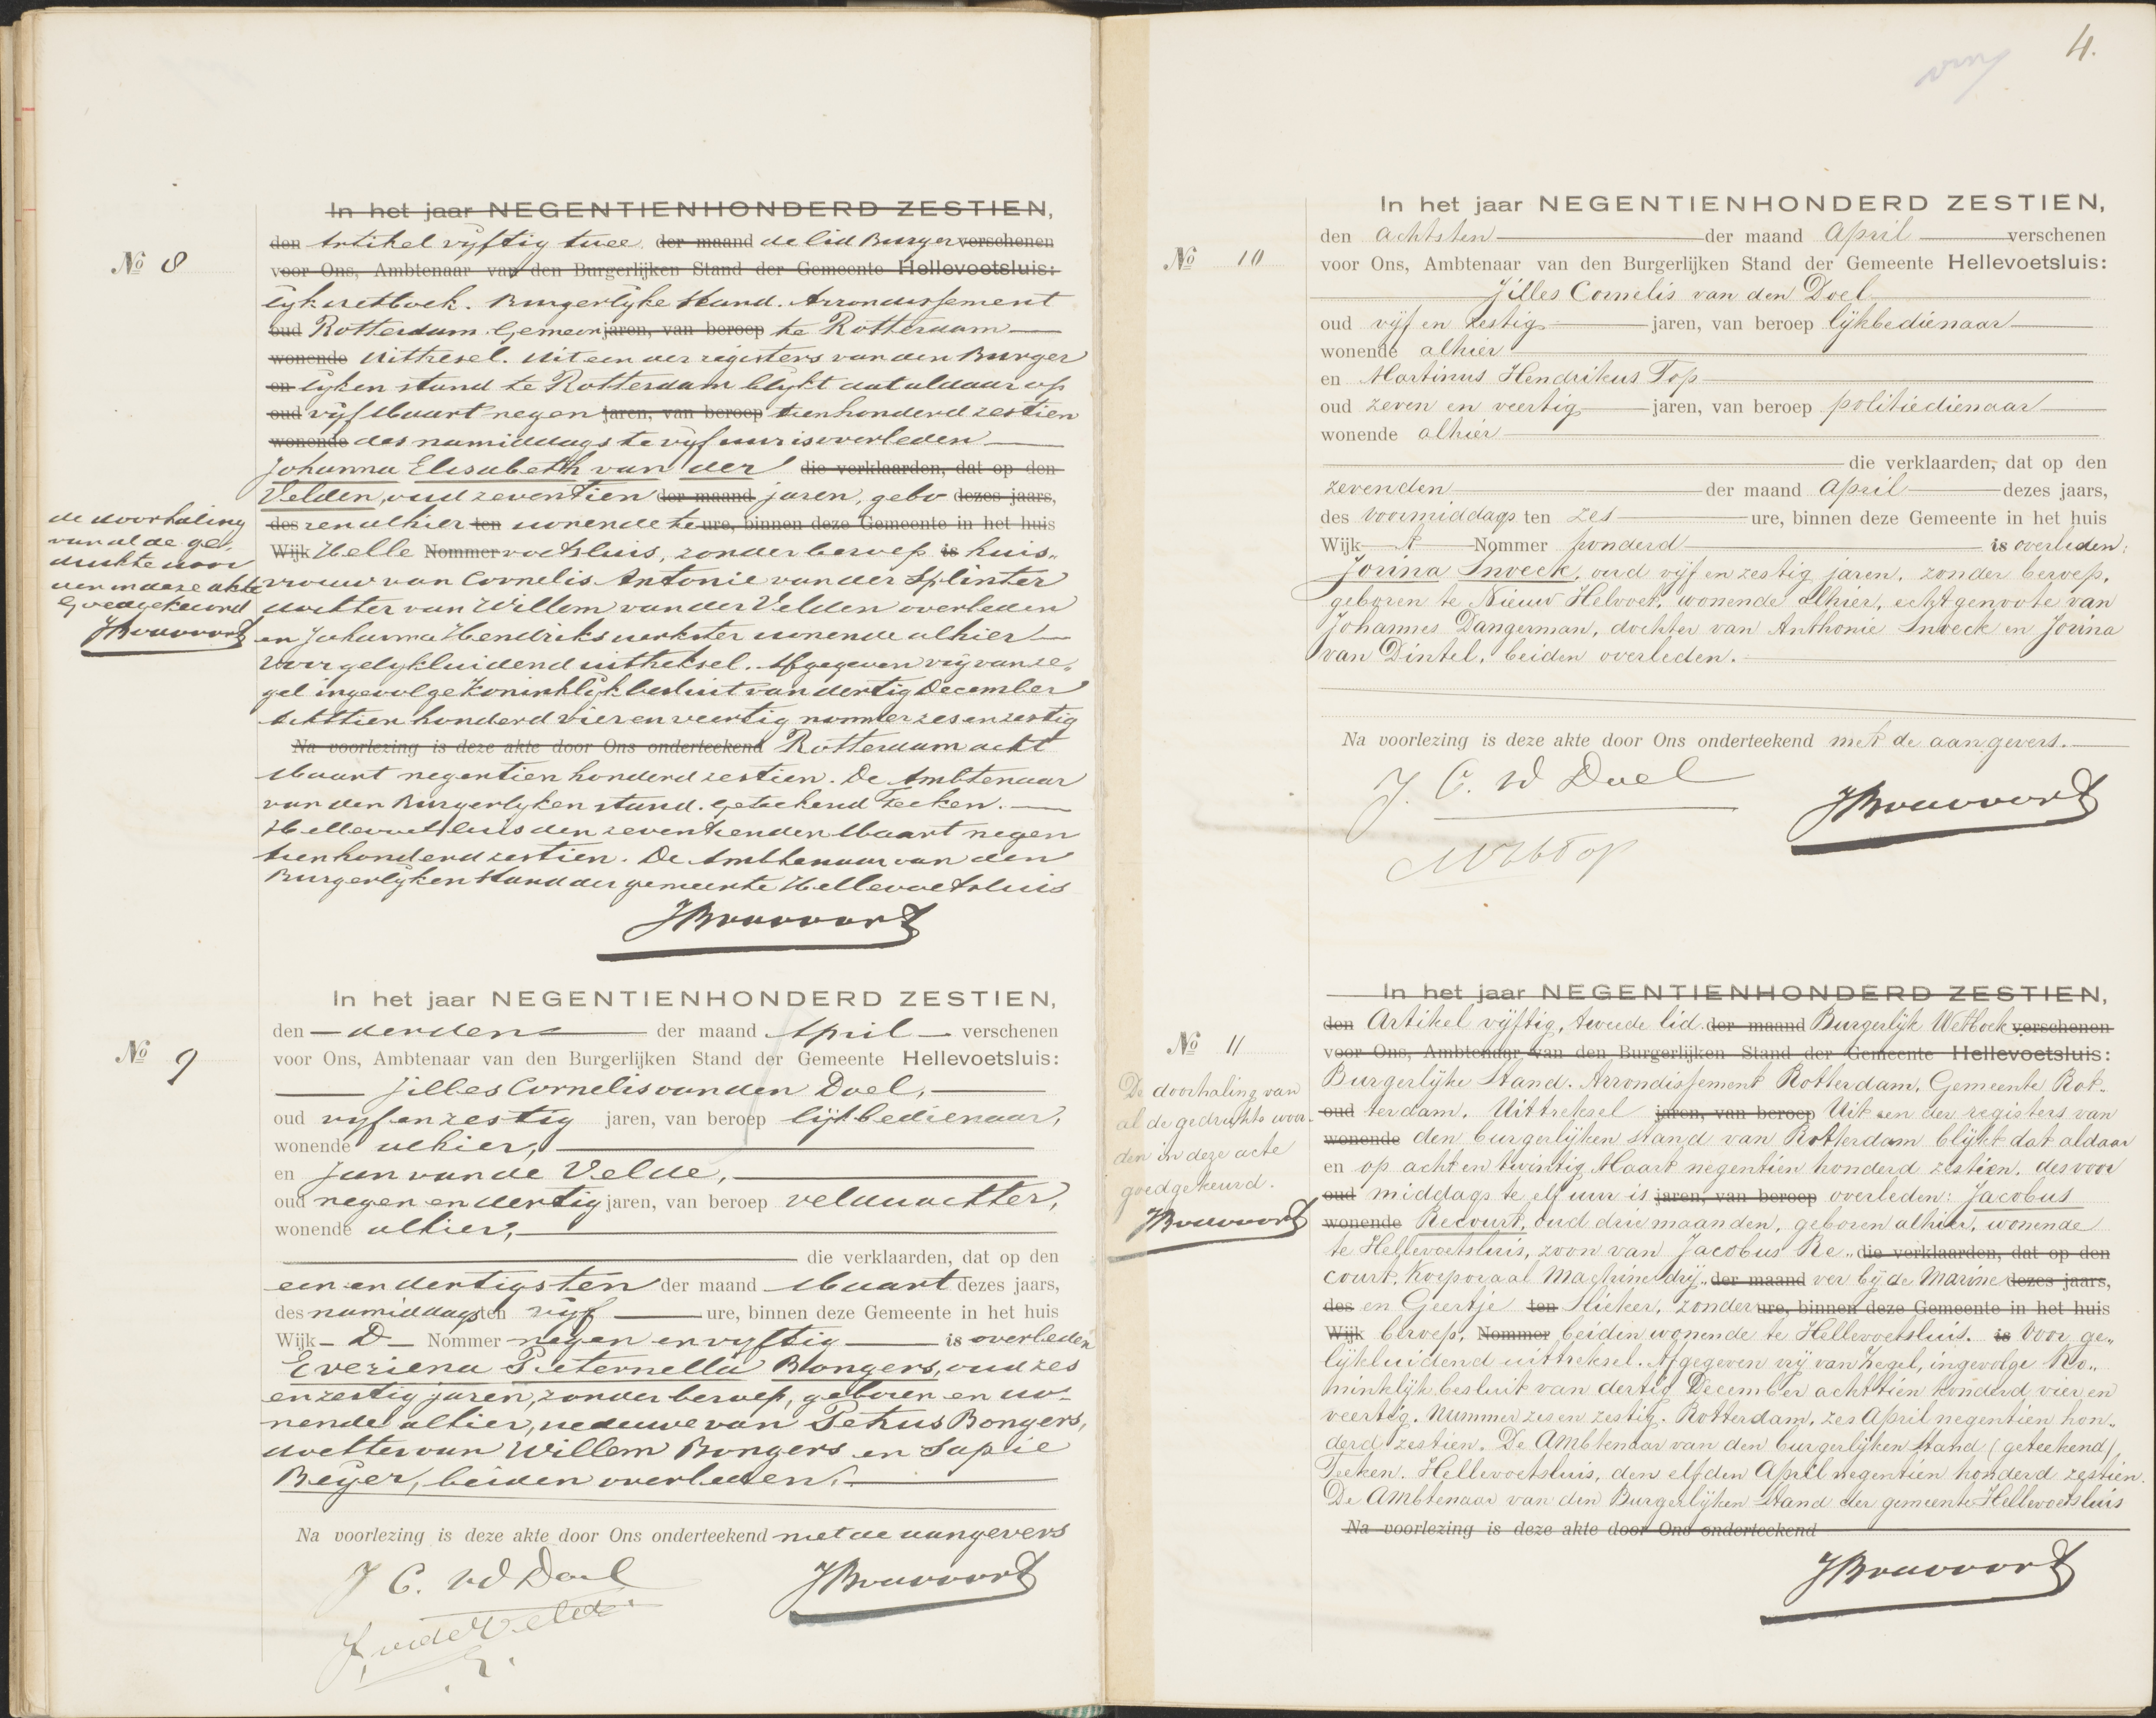 In het jaar NEGENTIENHONDERD ZESTIEN,
den Artikel vyftig twee der maand de lid Burger verschenen
voor Ons, Ambtenaar van den Burgerlijken Stand der Gemeente Hellevoetsluis:
lyk wetboek. Burgerlyke Stand. Arrondissement
oud Rotterdam Gemeen jaren, van beroep te Rotterdam
wonende Uittresel. Uit een der registers van den Burger
en lyken stand te Rotterdam blykt dat aldaar op
oud vyf Maart negen jaren, van beroep tienhonderd zestien
wonende des namiddags te vyf uur is overleden
Johanna Elisabeth van der die verklaarden, dat op den
Velden, oud zeventien der maand jaren, gebo dezes jaars,
des ren alhier ten wonende te ure, binnen deze Gemeente in het huis
Wijk Helle Nommer voetsluis, zonder beroep is huis„
vrouw van Cornelis Antonie van der Splinter
dochter van Willem van der Velden overleden
en Johanna Hendriks werkster wonende alhier
Voor gelykluidend uittreksel. Afgegeven vrij van ze„
gel ingevolge Koninklijk besluit van dertig December
achttien honderd vier en veertig nommer zes en zestig
Na voorlezing is deze akte door Ons onderteekend Rotterdam acht
Maart negentien honderd zestien. De Ambtenaar
van den Burgerlyken stand. Geteekend Teeken.
Hellevoetsluis den zeventienden Maart negen
tienhonderd zestien. De Ambtenaar van den
Burgerlyken Stand der gemeente Hellevoetsluis
No 8
de doorhaling
van al de ge„
drukte woor
den in deze akte
goedgekeurd
In het jaar NEGENTIENHONDERD ZESTIEN,
No 9
den derden der maand April verschenen
voor Ons, Ambtenaar van den Burgerlijken Stand der Gemeente Hellevoetsluis:
Jilles Cornelis van den Doel,
oud vyf en zestig jaren, van beroep lijkbedienaar,
wonende alhier,
en Jan van de Velde,
oud negen en dertig jaren, van beroep veldwachter,
wonende alhier,
die verklaarden, dat op den
een en dertigsten der maand Maart dezes jaars,
des namiddags ten vijf ure, binnen deze Gemeente in het huis
Wijk D Nommer negen en vyftig is overleden
Everiena Pieternella Bongers, oud zes
en zestig jaren, zonder beroep, geboren en wo„
nende alhier, weduwe van Petrus Bongers,
dochter van Willem Bongers en Sapie
Beijer, beiden overleden.
Na voorlezing is deze akte door Ons onderteekend met de aangevers
J C. vd Doel
J. vd Velde
4.
In het jaar NEGENTIENHONDERD ZESTIEN,
No 10
den achtsten der maand April verschenen
voor Ons, Ambtenaar van den Burgerlijken Stand der Gemeente Hellevoetsluis:
Jilles Cornelis van den Doel
oud vijf en zestig jaren, van beroep lijkbedienaar
wonende alhier
en Martinus Hendrikus Top
oud zeven en veertig jaren, van beroep politiedienaar
wonende alhier
die verklaarden, dat op den
zevenden der maand April dezes jaars,
des voormiddags ten zes ure, binnen deze Gemeente in het huis
Wijk A Nommer honderd is overleden:
Jorina Snoeck, oud vijf en zestig jaren, zonder beroep,
geboren te Nieuw Helvoet, wonende alhier, echtgenoote van
Johannes Dangerman, dochter van Anthonie Snoeck en Jorina
van Dintel, beiden overleden.
Na voorlezing is deze akte door Ons onderteekend met de aangevers.
J. C. vd Doel
MH Top
In het jaar NEGENTIENHONDERD ZESTIEN,
den Artikel vijftig, tweede lid der maand Burgerlijk Wetboek verschenen
voor Ons, Ambtenaar van den Burgerlijken Stand der Gemeente Hellevoetsluis:
No 11
Burgerlijke Stand. Arrondissement Rotterdam, Gemeente Rot„
oud terdam. Uittreksel jaren, van beroep Uit een der registers van
wonende den burgerlijken stand van Rotterdam blijkt dat aldaar
en op acht en twintig Maart negentien honderd zestien, des voor
oud middags te elf uur is jaren, van beroep overleden: Jacobus
wonende Recourt, oud drie maanden, geboren alhier, wonende
te Hellevoetsluis, zoon van Jacobus Re„ die verklaarden, dat op den
court, Korporaal Machinedrij„ der maand ver bij de Marine dezes jaars,
des en Geertje ten Slieker, zonder ure, binnen deze Gemeente in het huis
Wijk beroep, Nommer beiden wonende te Hellevoetsluis. is Voor ge„
lijkluidend uittreksel. Afgegeven vrij van Zegel, ingevolge Ko„
ninklijk besluit van dertig December achttien honderd vier en
veertig. Nummer zes en zestig. Rotterdam, zes April negentien hon„
derd zestien. De Ambtenaar van den burgerlijken Stand (geteekend)
Teeken. Hellevoetsluis, den elfden April negentien honderd zestien.
De Ambtenaar van den Burgerlijken Stand der gemeente Hellevoetsluis
Na voorlezing is deze akte door Ons onderteekend
De doorhaling van
al de gedrukte woor„
den in deze acte
goedgekeurd.